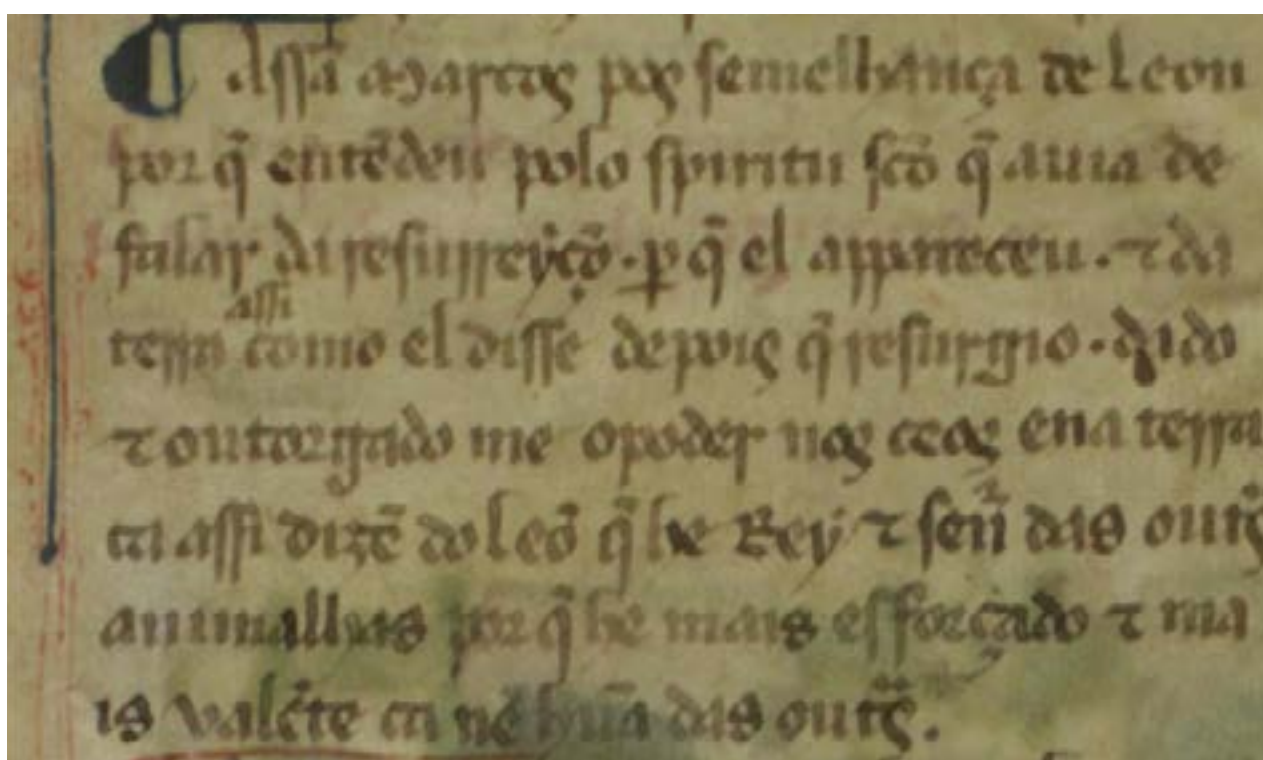 A ssã Marcos pos semelhança de Leon
por q̃ entẽdeu polo spiritu sc̃o q̃ auia de
falar da resurreyçõ . ꝑ q̃ el appareceu . ⁊ da
terra assi como el disse depois q̃ resurgio . dado
⁊ outorgado me o poder nos ceos ena terra
ca assi dizẽ do leõ q̃ he Rey ⁊ señ das outͣs
animalhas por q̃ he mais esforçado ⁊ ma
is valẽte ca nẽ hũa das outͣs .